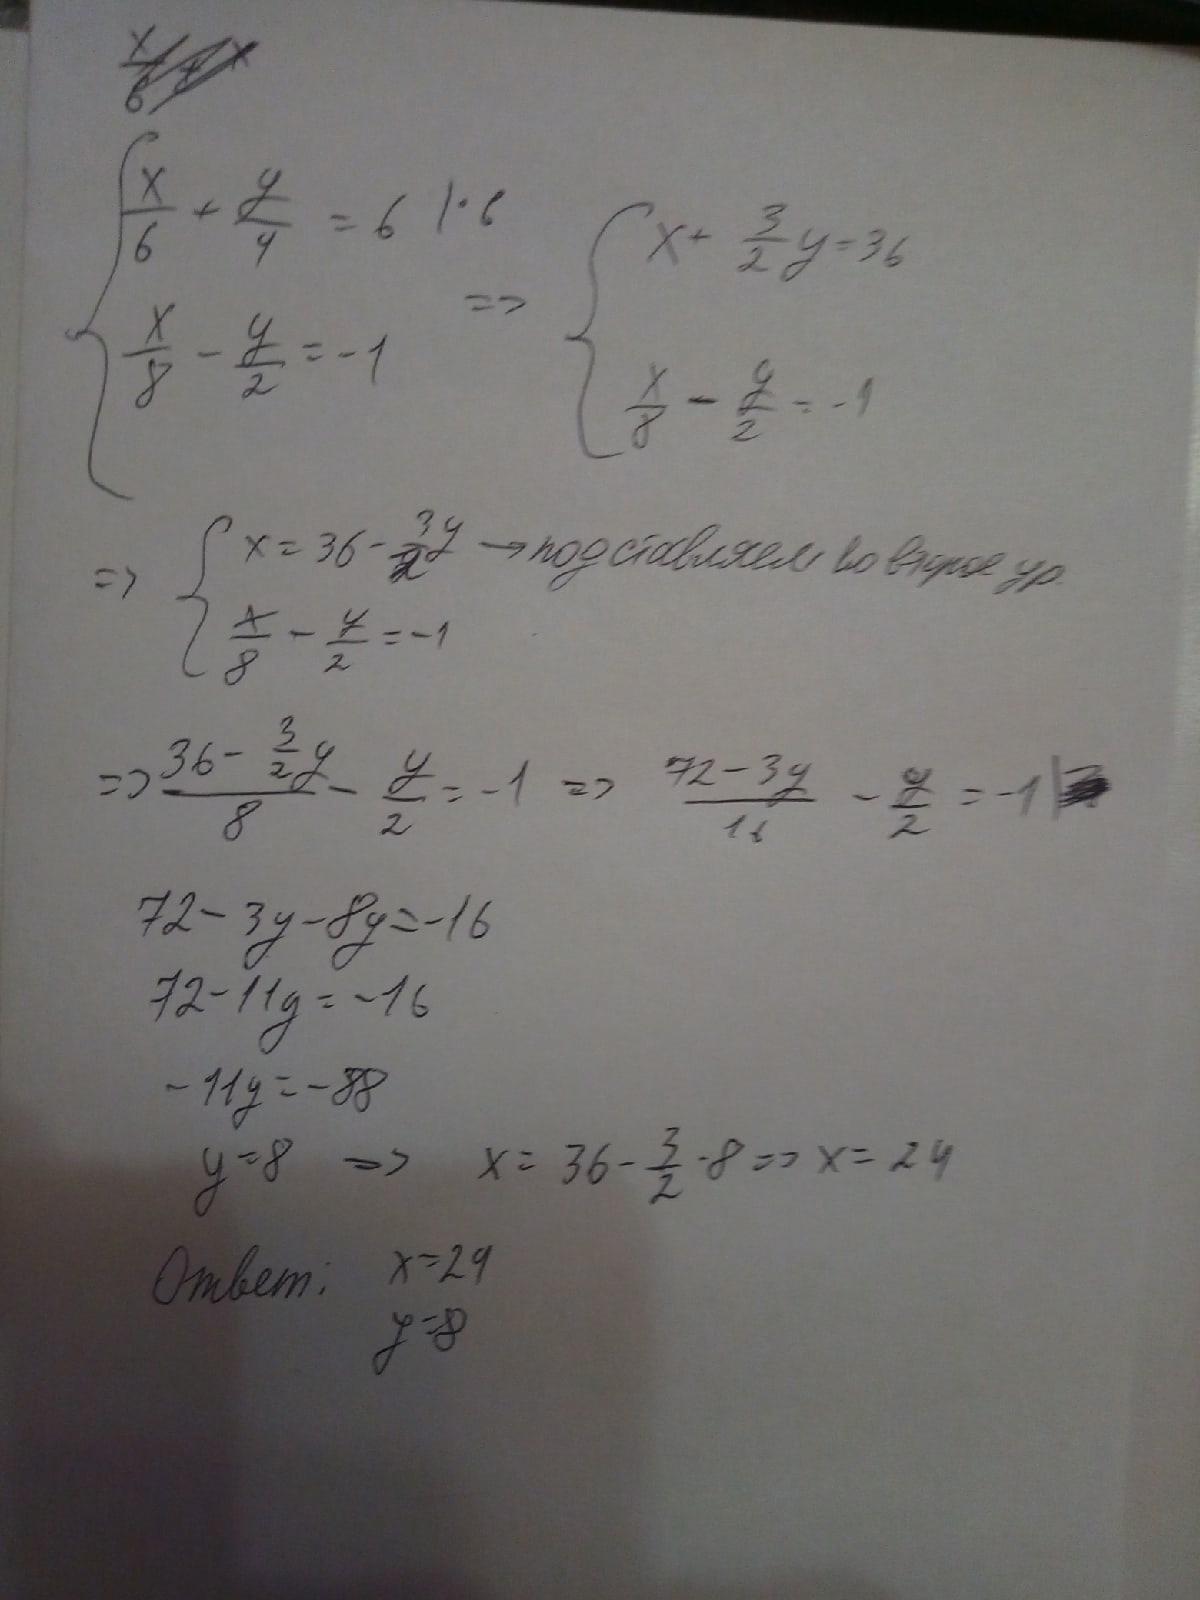 x/6 + y/4 = 6 |·6 => x + 3/2 y = 36
x/8 - y/2 = -1 x/8 - y/2 = -1
=> x = 36 - 3y/2 → подставляем во второе ур.
x/8 - y/2 = -1
=> (36 - 3/2 y)/8 - y/2 = -1 => (72 - 3y)/16 - y/2 = -1
72 - 3y - 8y = -16
72 - 11y = -16
-11y = -88
y = 8 => x = 36 - 3/2 · 8 => x = 24
Ответ: x = 24
y = 8